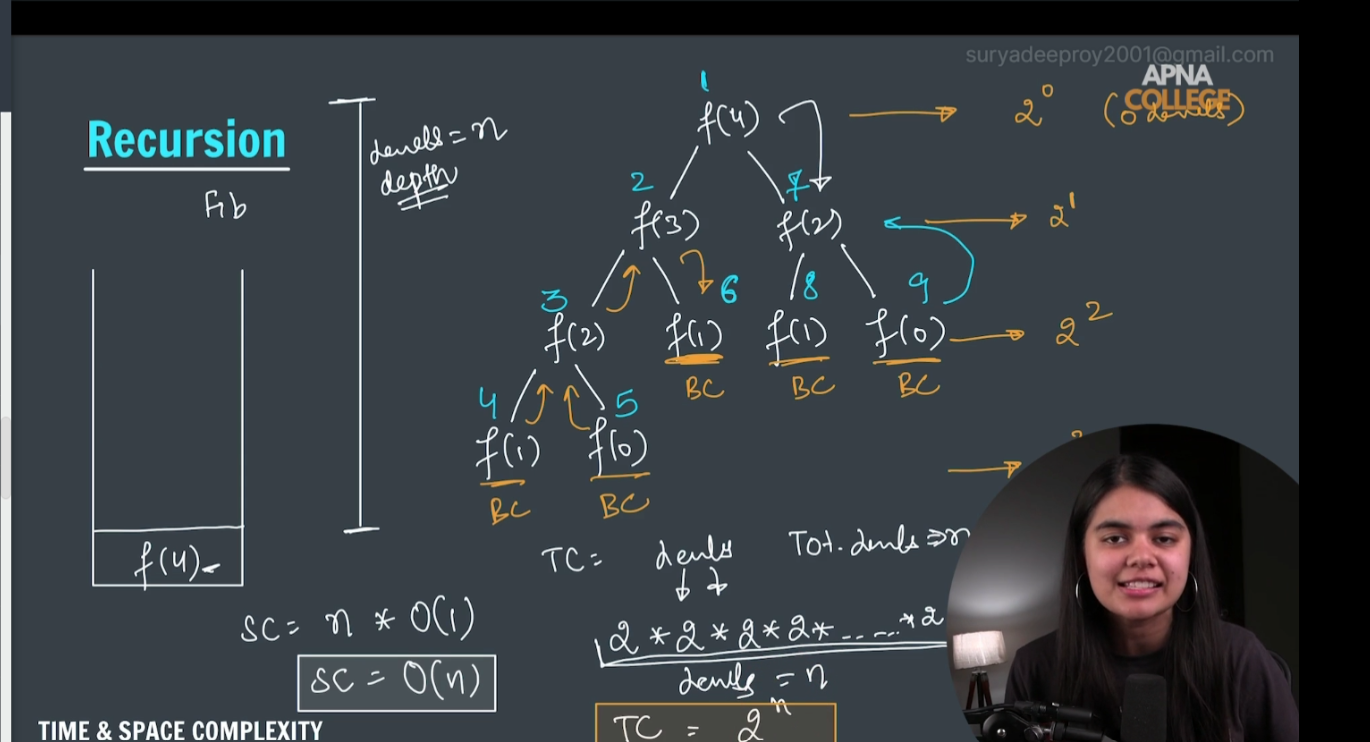 suryadeeproy2001@gmail.com
APNA
COLLEGE
Recursion
Fib
levels = n
depth
1
f(4)
2⁰ (0 levels)
2
7
f(3)
f(2)
2¹
3
6
8
9
f(2)
f(1)
f(1)
f(0)
2²
BC
BC
BC
4
5
f(1)
f(0)
BC
BC
f(4)
TC =
levels
Tot. levels => n
SC = n * O(1)
2 * 2 * 2 * 2 * ----- * 2
levels = n
SC = O(n)
TC = 2ⁿ
TIME & SPACE COMPLEXITY